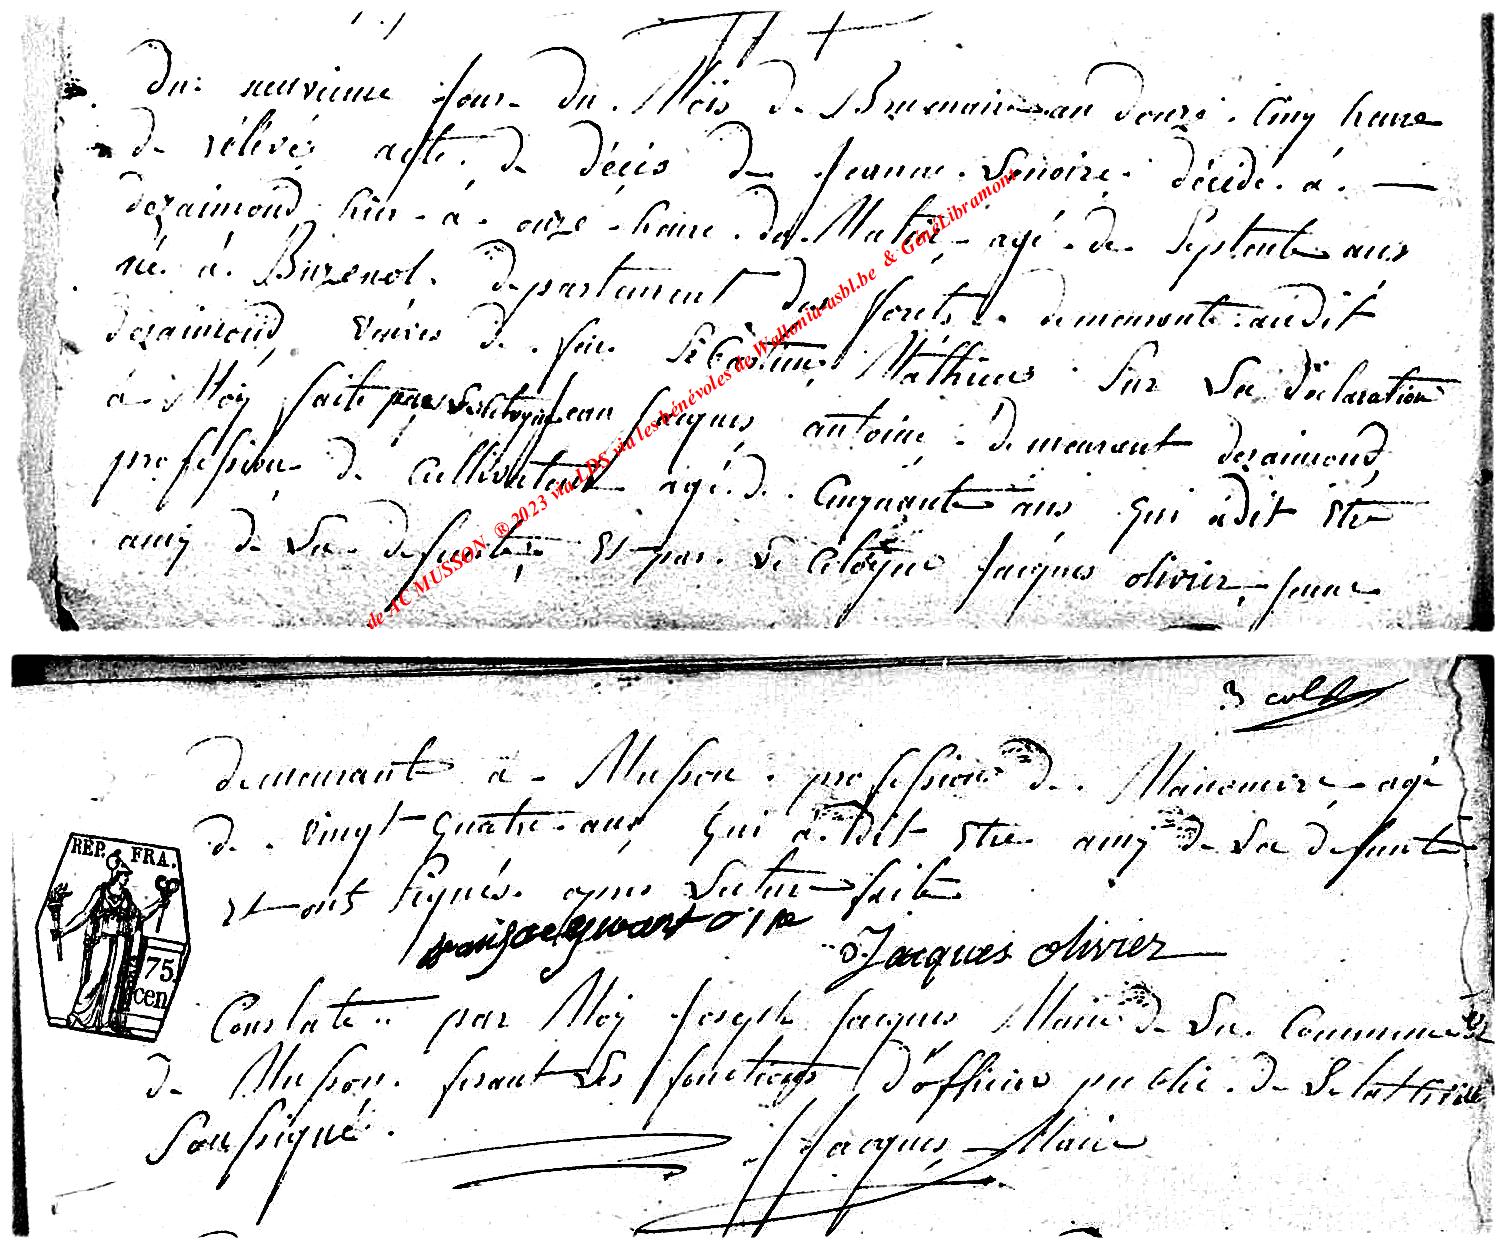 du neuvieme jour du Mois de Brumaire an douze. Cinq heure
de rélévé acte de décès de jeanne Lenoire. décidé. à. —
dezaimond hier à onze heure du Matin agé de Septente ans
né à Buzenol. departement des forêts demeurante audit
dezaimond veuve de feu Sébastien Mathieu Sur La déclaration
à Moÿ faite par Le citoyen jean jacques antoine demeurant dezaimond
profession de Cultivateur agé de Cinquante ans qui a dit Etre
amÿ de La defunte Et par Le Citoÿen jacques olivier jeune
3 coll
demeurant à Musson profession de Manouvre agé
de vingt quatre ans qui a dit Etre amÿ de La defunte
Et ont Signés apres Lectur faite
Jacques olivier
Constaté par Moÿ joseph jacques Maire de La Commune
de Musson. fesant Les fonctions d'officier public de L'etat civil
Soussigné.
J Jacques Maire
REP. FRA.
75
cen
de ACMUSSON ® 2023 via LDS via les bénévoles de Wallonia-asbl.be & GénéLibramont